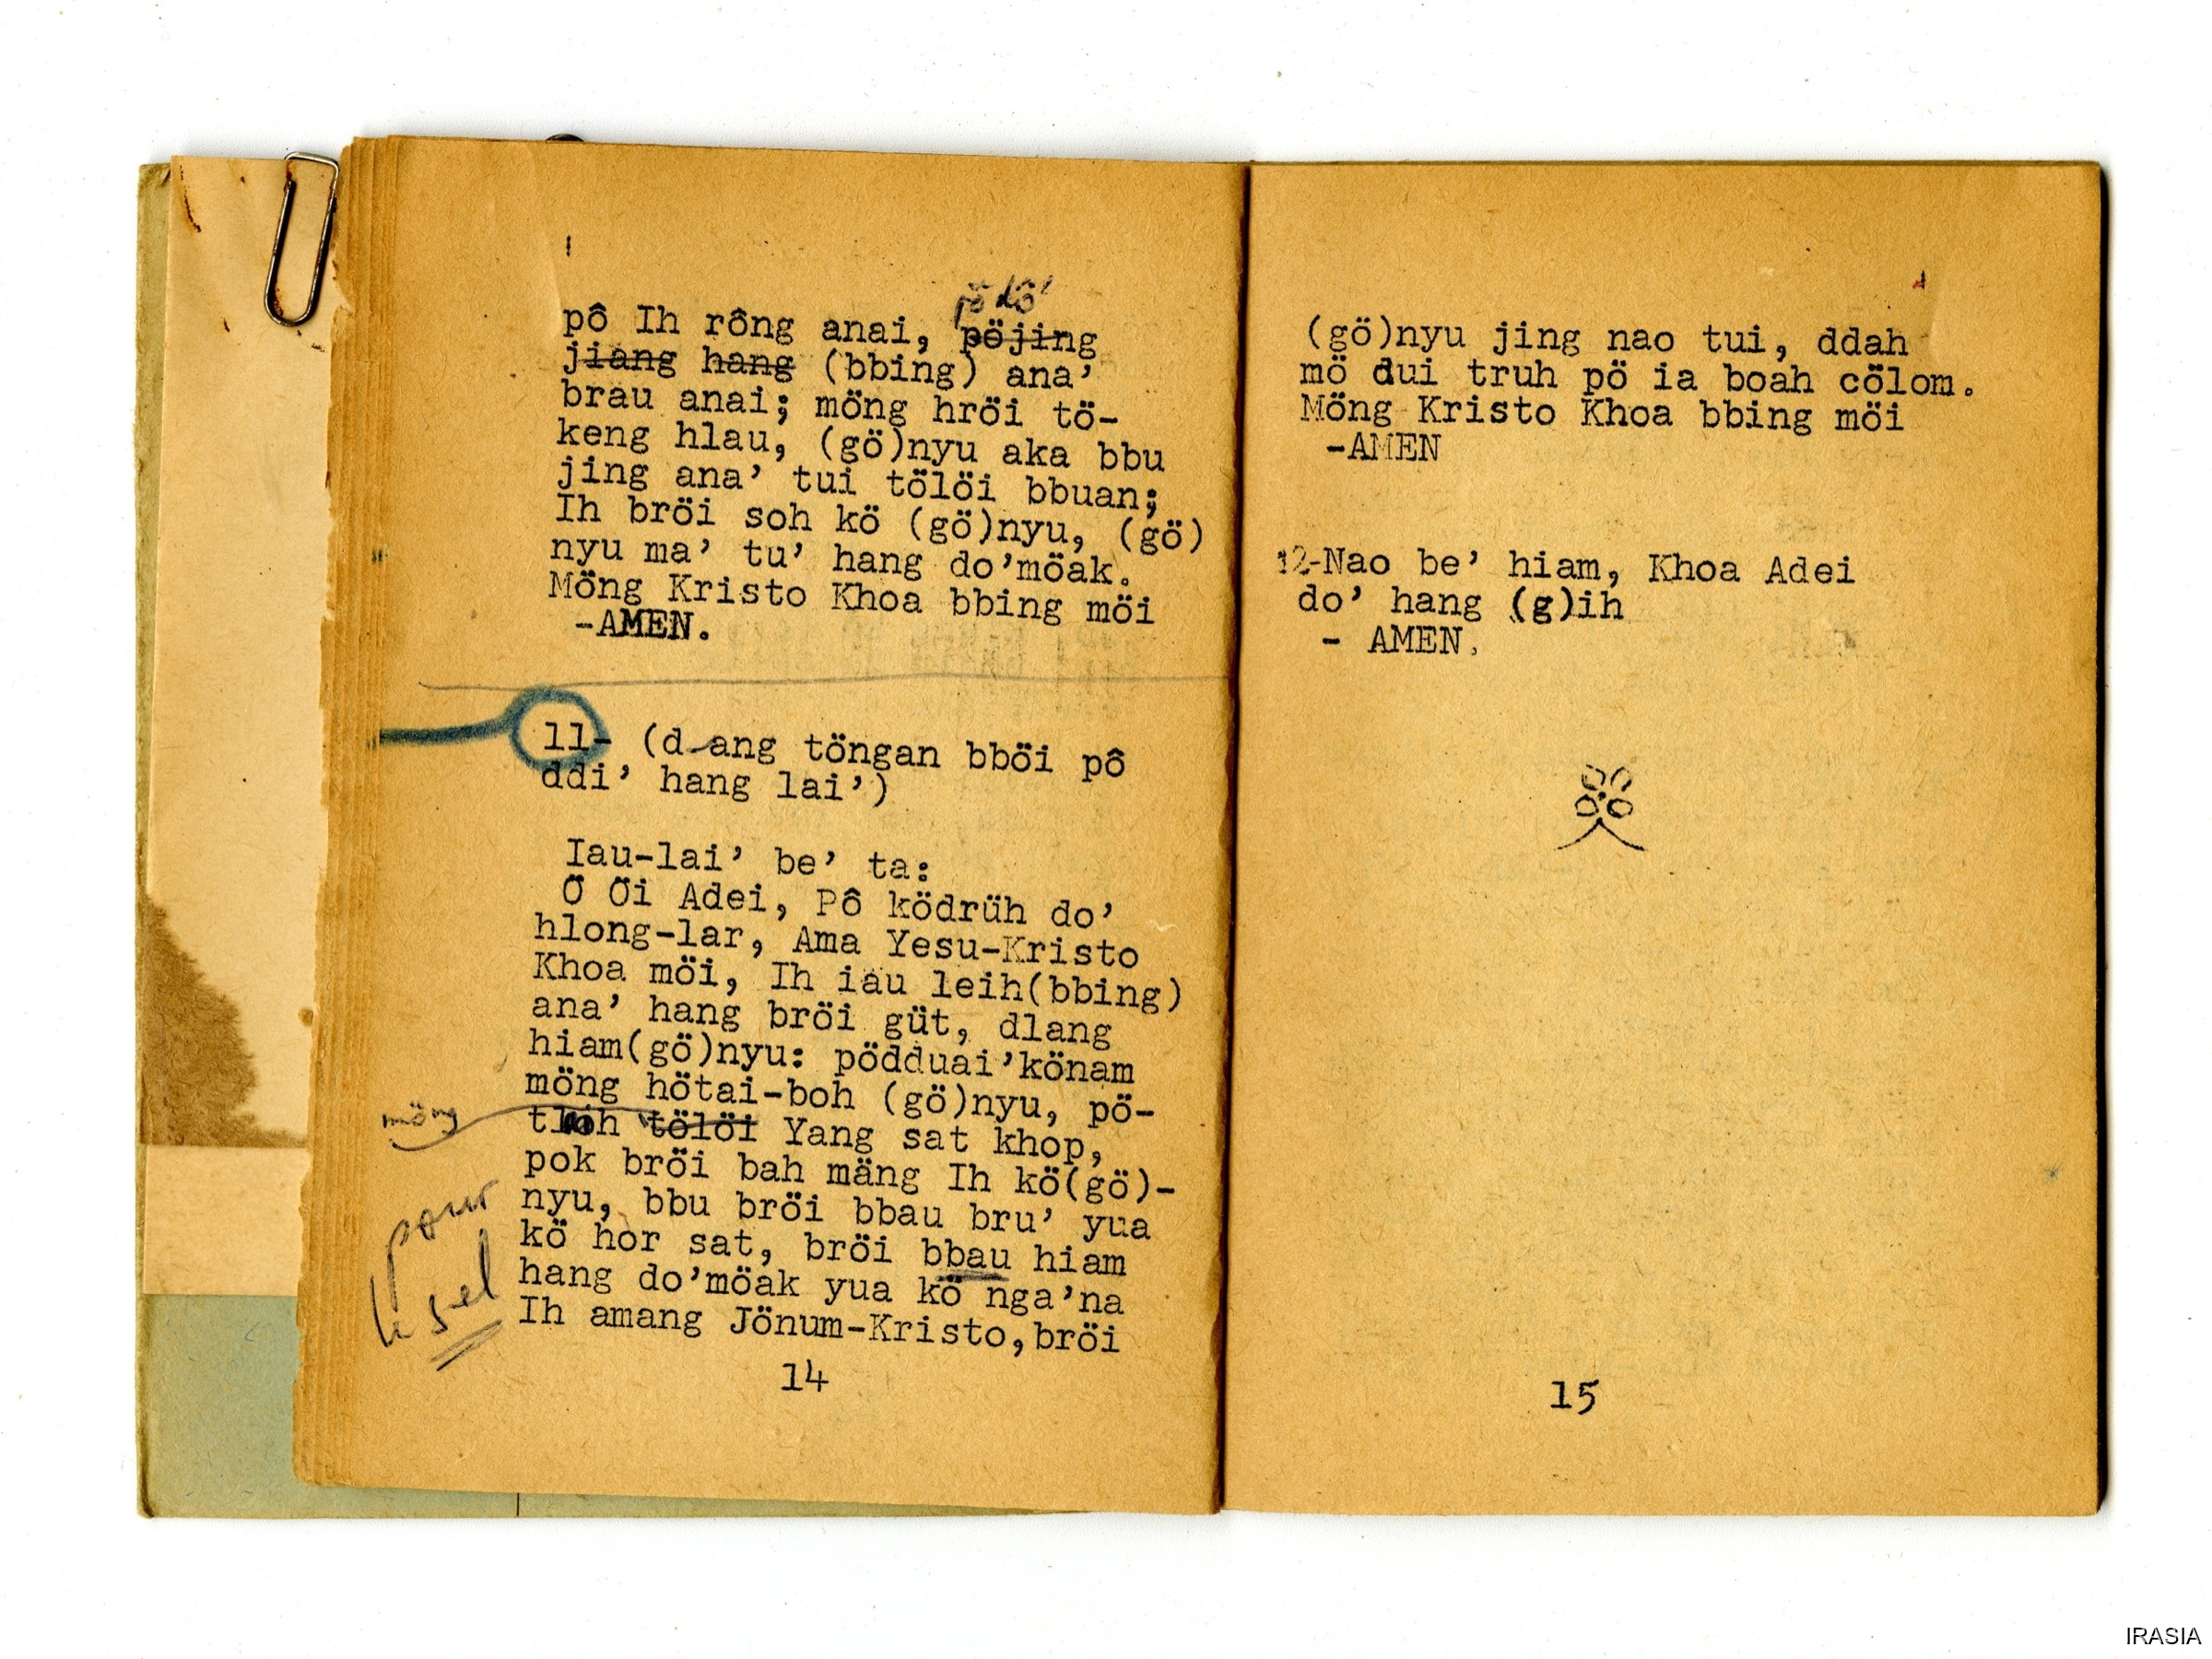 pö dô'
pô Ih rông anai, pöjing
jiang hang (bbing) ana’
brau anai; möng hröi tö-
keng hlau, (gö)nyu aka bbu
jing ana’ tui tölöi bbuan;
Ih bröi soh kö (gö)nyu, (gö)
nyu ma’ tu’ hang do’möak.
Möng Kristo Khoa bbing möi
-AMEN.
11- (d ang töngan bböi pô
ddi’ hang lai’)
Iau-lai’ be’ ta:
Ö Öi Adei, Pô ködrüh do’
hlong-lar, Ama Yesu-Kristo
Khoa möi, Ih iău leih(bbing)
ana’ hang bröi güt, dlang
hiam(gö)nyu: pödduai’könam
möng hötai-boh (gö)nyu, pö-
möng
tloh tölöi Yang sat khop,
pok bröi bah mäng Ih kö(gö)-
nyu, bbu bröi bbau bru’ yua
kö hor sat, bröi bbau hiam
hang do’möak yua kö nga’na
Ih amang Jönum-Kristo,bröi
pour
le sel
14
(gö)nyu jing nao tui, ddah
mö dui truh pö ia boah cölom.
Möng Kristo Khoa bbing möi
-AMEN
12-Nao be’ hiam, Khoa Adei
do’ hang (g)ih
- AMEN.
15
IRASIA